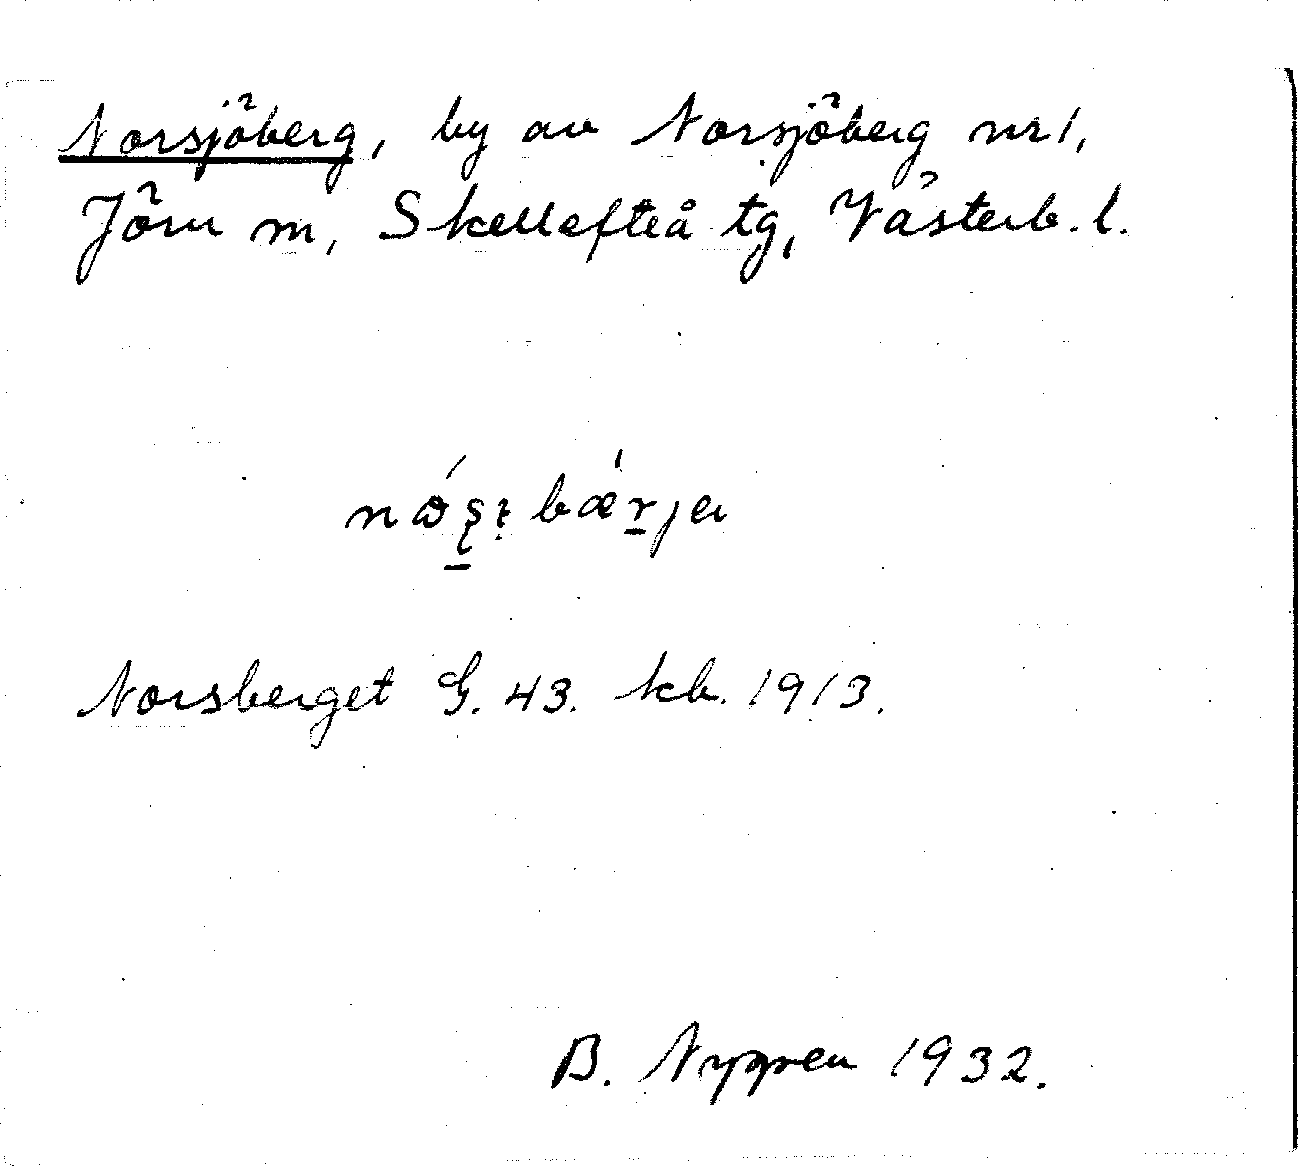 Norsjöberg, by av Norsjöberg nr 1,
Jörn sn, Skellefteå tg, Västerb. l.
Norsberget G. 43. kb. 1913.
B. Nygren 1932.